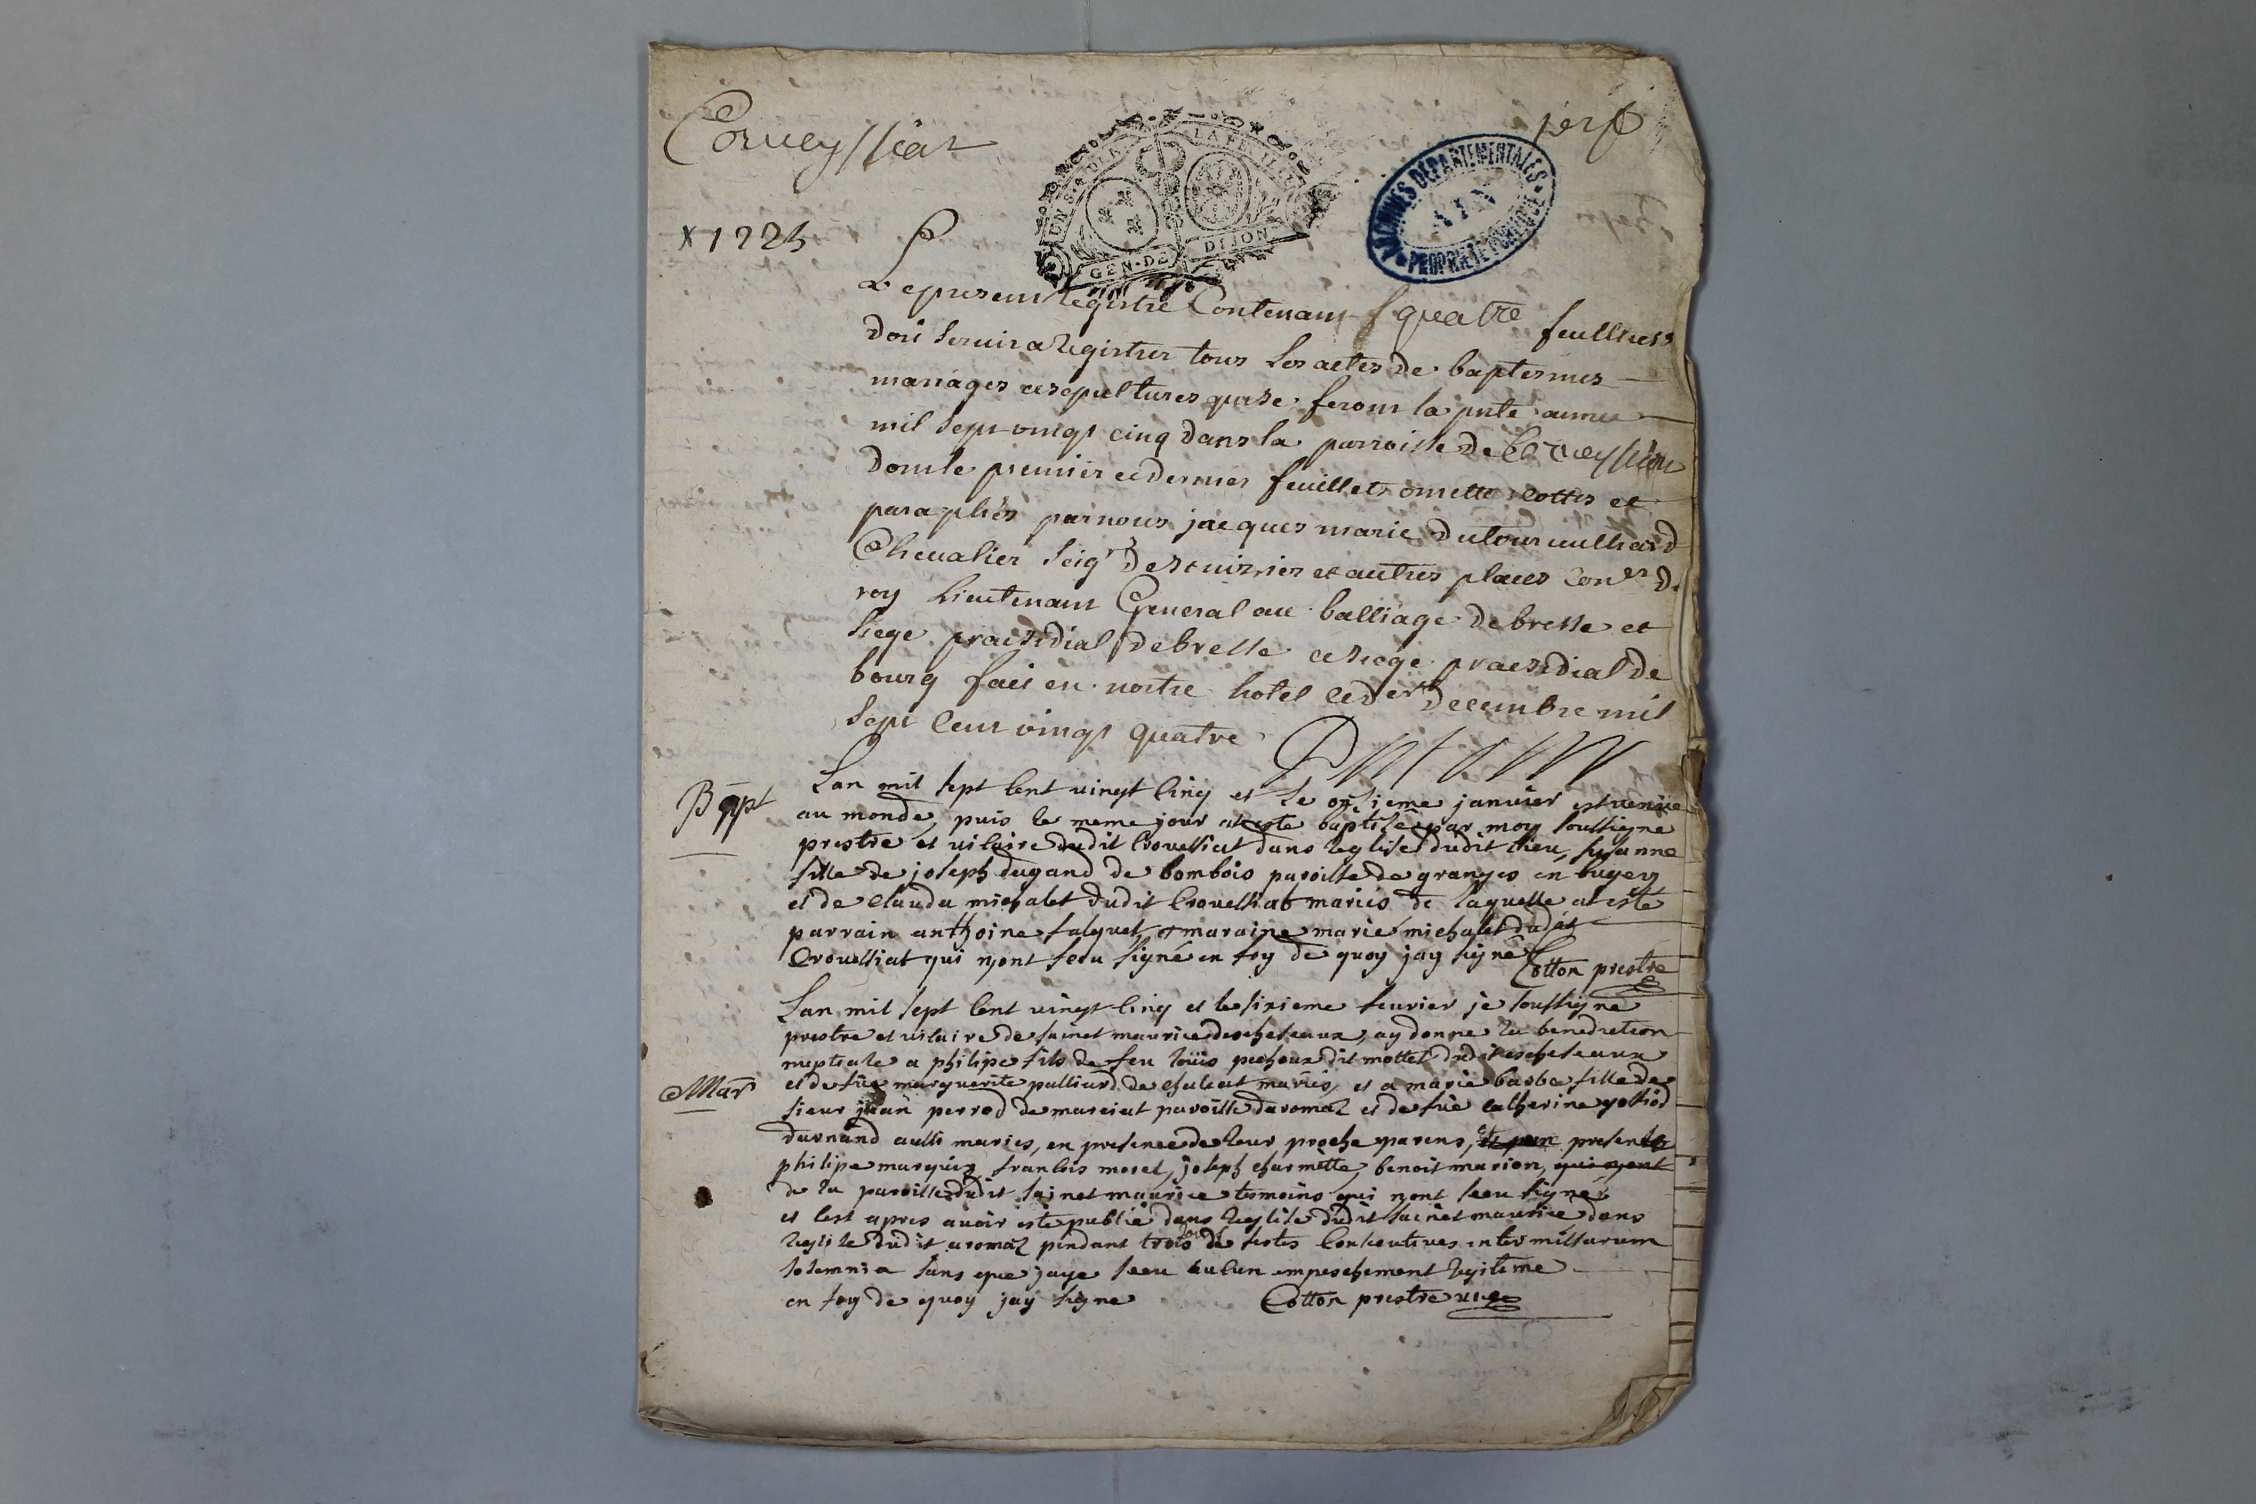 Corveyssiat
per p
GEN·DE DIJON
ARCHIVES DÉPARTEMENTALES
AIN
PROPRIÉTÉ PUBLIQUE
x 1725
Le present Registre Contenant quatre feulliets
doit servir a registrer tous les actes de baptesmes
mariages et sepultures qui se feront la pnte annee
mil sept vingt cinq dans la parroisse de Corveyssiat
dont le premier et dernier feuillets ont ette cottes et
paraphés par nous jacques marie dutour vulliard
Chevalier Seigr de st nizier et autres places Conser d.
roy Lieutenant General au balliage de bresse et
siege praesidial de bresse et siege praesidial de
bourg fait en nostre hotel le der decembre mil
sept cent vingt quatre
Bapt
Lan mil sept cent vingt cinq et le onsieme janvier est venüe
au monde, puis le meme jour at este baptisée par moy soussigne
prestre et vicaire dudit Crovessiat dans leglise dudit lieu, susanne
fille de joseph dugand de bombois paroisse de granges en bugey
et de clauda michalet dudit Crovessiat mariés de laquelle at este
parrain anthoine falquet et maraine marie michalet dudit
Crovessiat qui nont sceu signé en foy de quoy jay signé
Cotton prestre
Lan mil sept cent vingt cinq et le sixieme fevrier je soussigné
prestre et vicaire de sainct maurice deschaseaux, ay donne la benediction
nuptiale a philipe fils de feu loüis pochoux dit mottet dudit escheseaux
Mar
et de füe marguerite palliard de chaleat mariés, et a marie barbe fille de
sieur juan perrod de marciat paroisse daromaz et de füe catherine
durnand aussi maries, en presence de leur proche parens, presents
philipe marquis francois moret, joseph charmette, benoit marion, qui nont
de la paroisse dudit sainct maurice temoins qui nont sceu signé
et cest apres avoir este publié dans leglise dudit sainct maurice dans
leglise dudit aromaz pendant trois de festes Consecutives inter missarum
solemnia sans que jaye sceu aucun empeschement legiteme
en foy de quoy jay signe Cotton prestre vice